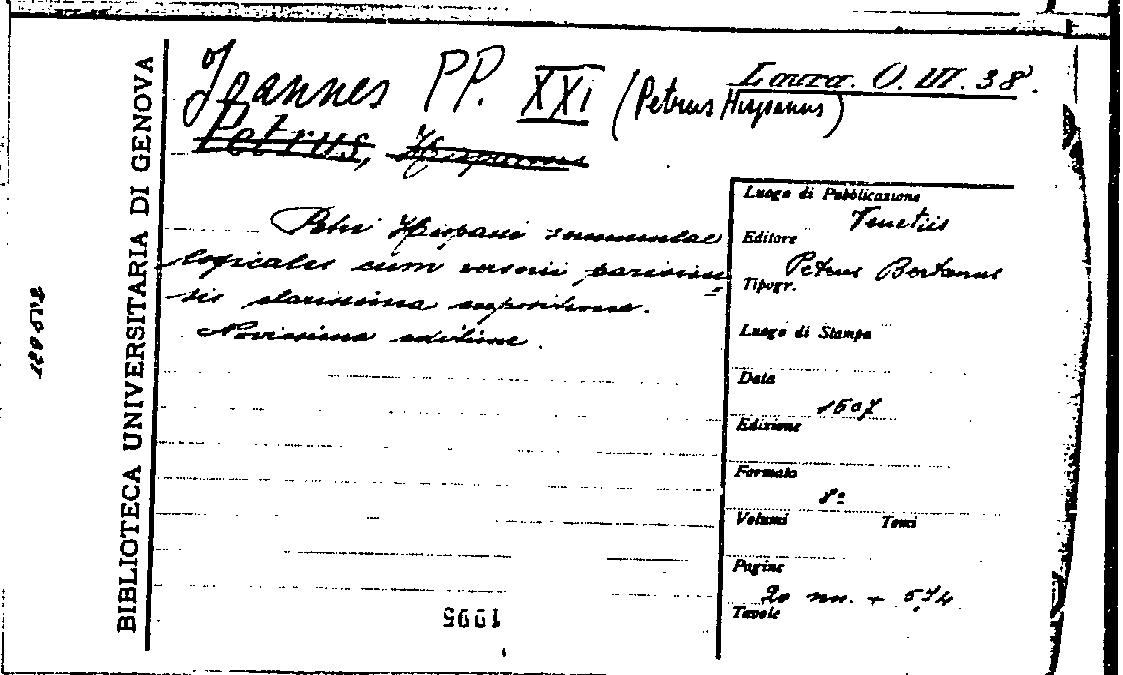 BIBLIOTECA UNIVERSITARIA DI GENOVA
Joannes PP. XXI (Petrus Hispanus)
Laura. O. III. 38.
Petrus, Hispanus
Petri Hispani summulae
logicales cum versorii parisien
sis clarissima expositione.
Novissima editione.
Luogo di Pubblicazione
Venetiis
Editore
Petrus Bertanus
Tipogr.
Luogo di Stampa
Data
1597
Edizione
Formato
8º
Volumi Tomi
Pagine
20 nn. + 574
Tavole
1995